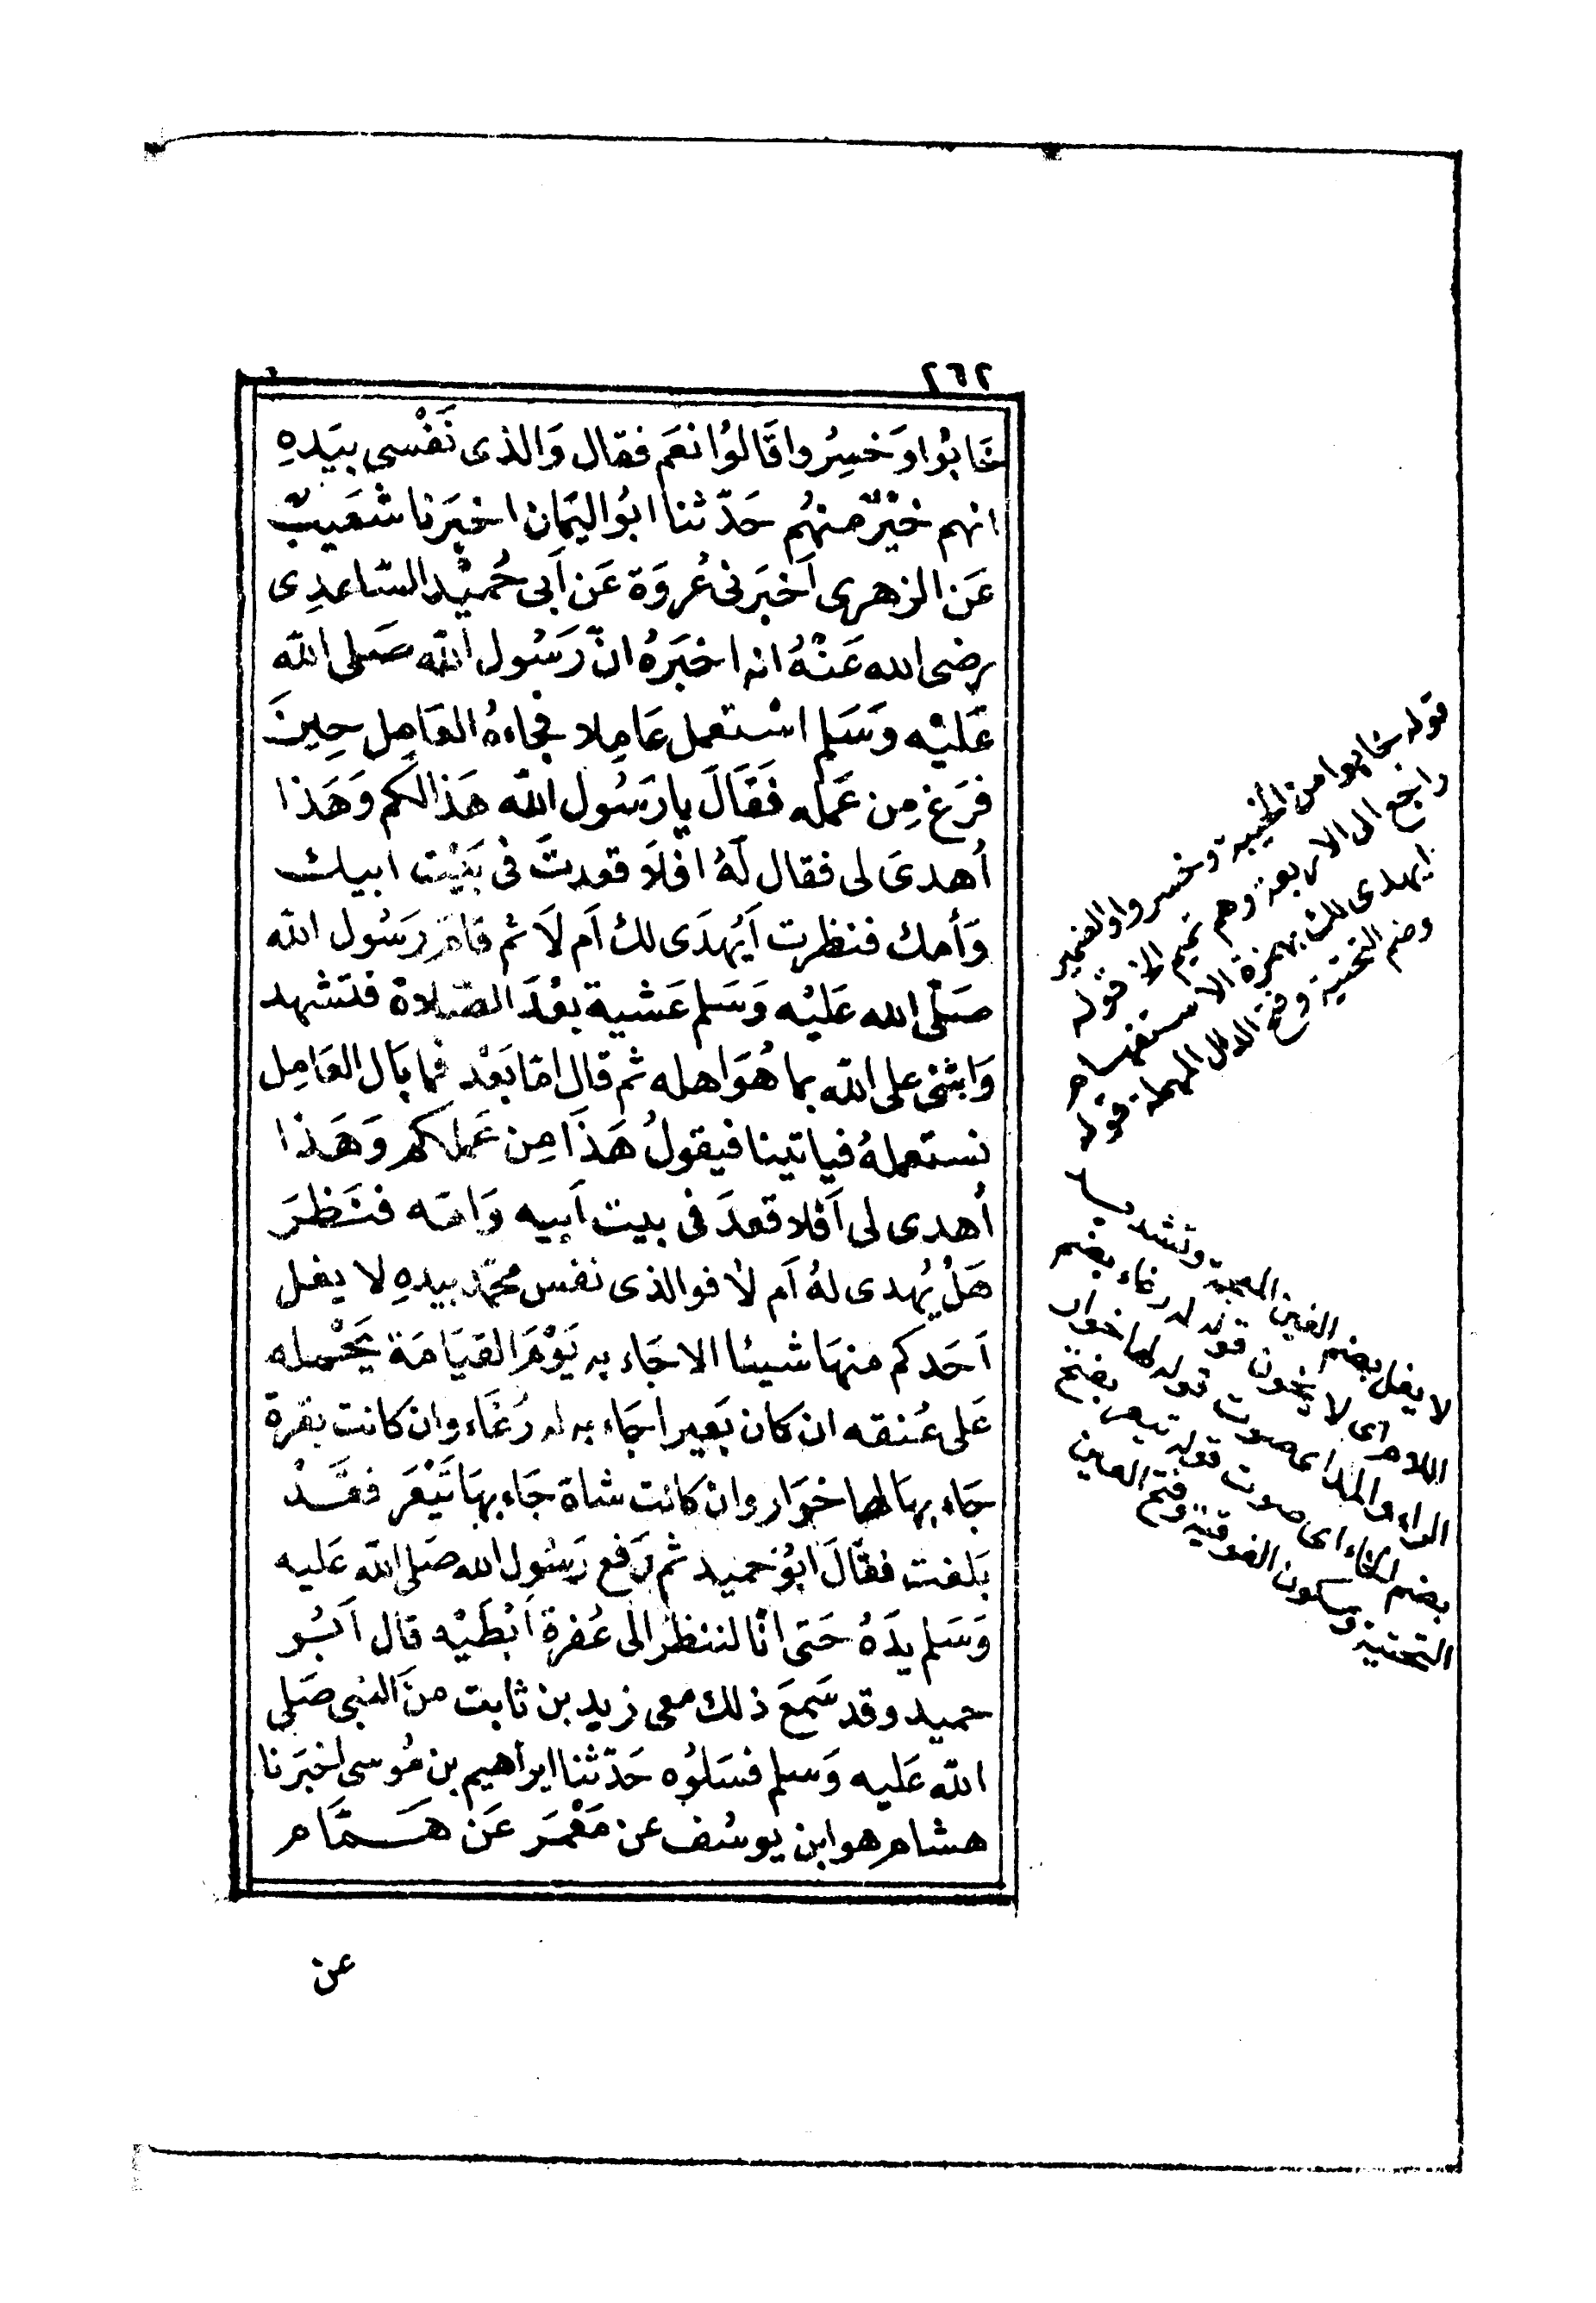 ٢٦٢
خَابُوا وَخسِرُوا قَالوُا نعَم فقال وَالذى نَفْسى بيَدهِ
انهم خيْرٌ منهُم حَدّثنا ابوُ اليَمَان اخبَرنا شعَيبٌ
عَن الزهرى اَخبَرنى عُروَة عَن اَبى حُميْد السّاعدِى
رضى الله عَنْهُ انه اخبَرهُ انّ رَسُول الله صَلى الله
عَليْه وَسَلم اسْتعمل عَامِلا فجاءهُ العَامِل حِينَ
فرَغ مِن عَمله فَقَالَ يا رَسُول الله هَذا لكم وَهَذا
اُهدىَ لى فقال لَهُ افلاَ قعدتَ فى بَيْت ابيك
وَأمك فنظرت اَيُهدَى لك اَم لاَ ثم قامَ رَسُول الله
صَلّى الله عَليْه وَسَلم عَشية بعْدَ الصّلاة فتشهد
وَاثنى على الله بما هُوَ اهله ثم قال امّا بَعْد فما بَال العَامِل
نستعملهُ فياتينا فيقولُ هَذَا مِن عَملكم وَهَذا
اُهدى لى اَفلا قعدَ فى بيت اَبيه وَامّه فنَظرَ
هَلْ يُهدى لهُ اَم لاْ فوالذى نفس محمّد بيدهِ لا يغل
اَحَدكم منهَا شيئا الا جَاء به يَوْمَ القيَامَة يَحْمله
عَلى عُنقه ان كان بَعيرا جَاء به له رُغَاء وان كانت بقرة
جَاء بهَا لها خوَار وان كانت شاة جَاء بهَا تَيْعَر فقَدْ
بَلغت فقالَ ابوُ حميد ثم رَفع رَسُول الله صَلى الله عَليه
وَسَلم يدَهُ حَتى انّا لننظرُ الى عُفرة اَبْطَيْه قال اَبُو
حميد وقد سَمعَ ذلك معى زيد بن ثابت منَ النبى صَلى
الله عَليه وَسلم فسَلوُه حَدّثنا ابراَهيم بن مُوسى اخبَرنا
هشام هو ابن يوسُف عن مَعْمَر عَن هَمَّام
عن
قوله خابوا من الخيبة وخسروا والضمير
راجع الى الاربعة وهم تميم الخ قوله
ايهدى لك بهمزة الاستفهام
وضم التحتية وفتح الدال المهملة قوله
لا يغل بضم الغين المعجمة وتشديد
اللام اى لا يخون قوله له رغاء بضم
الراء والمد اى صوت قوله لها خوار
بضم الخاء اى صوت قوله تيعر بفتح
التحتية وسكون الفوقية وفتح العين